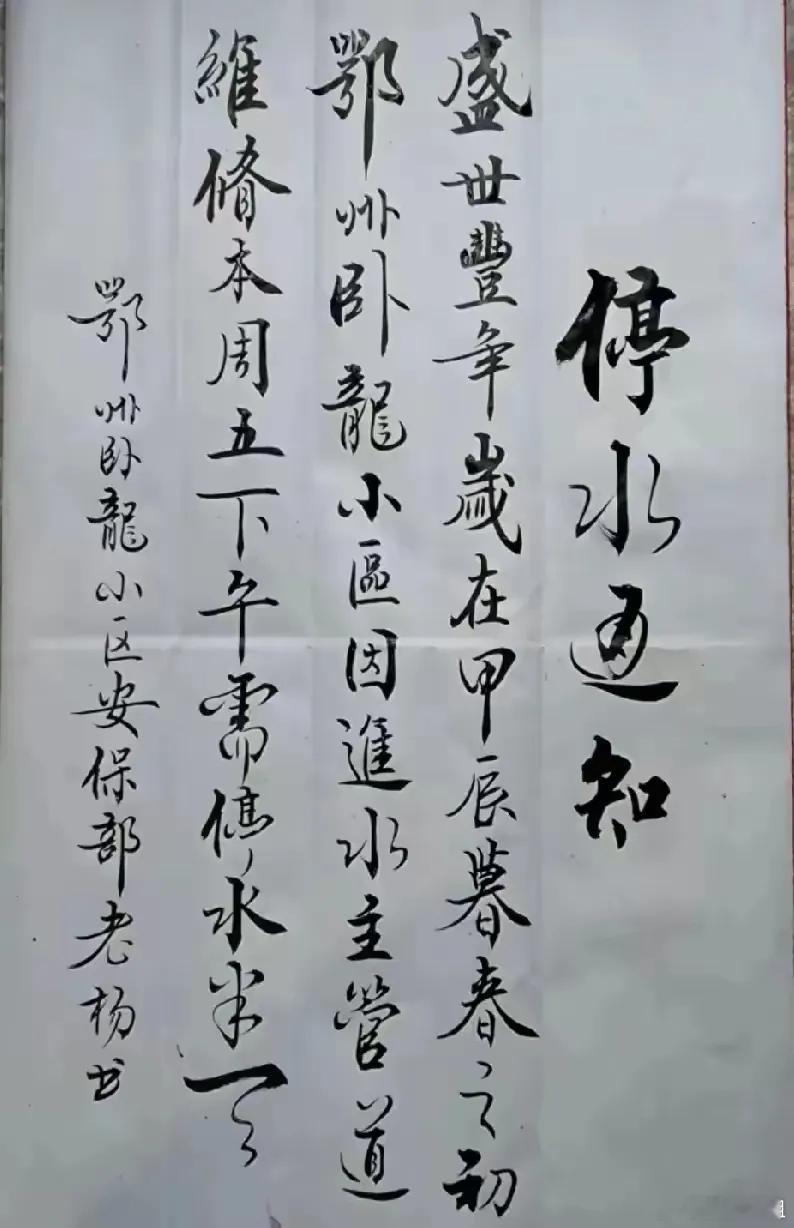 停水通知
盛世豐年歲在甲辰暮春之初
鄂州卧龍小區因進水主管道
維脩本周五下午需停水半天
鄂州卧龍小区安保部老杨书